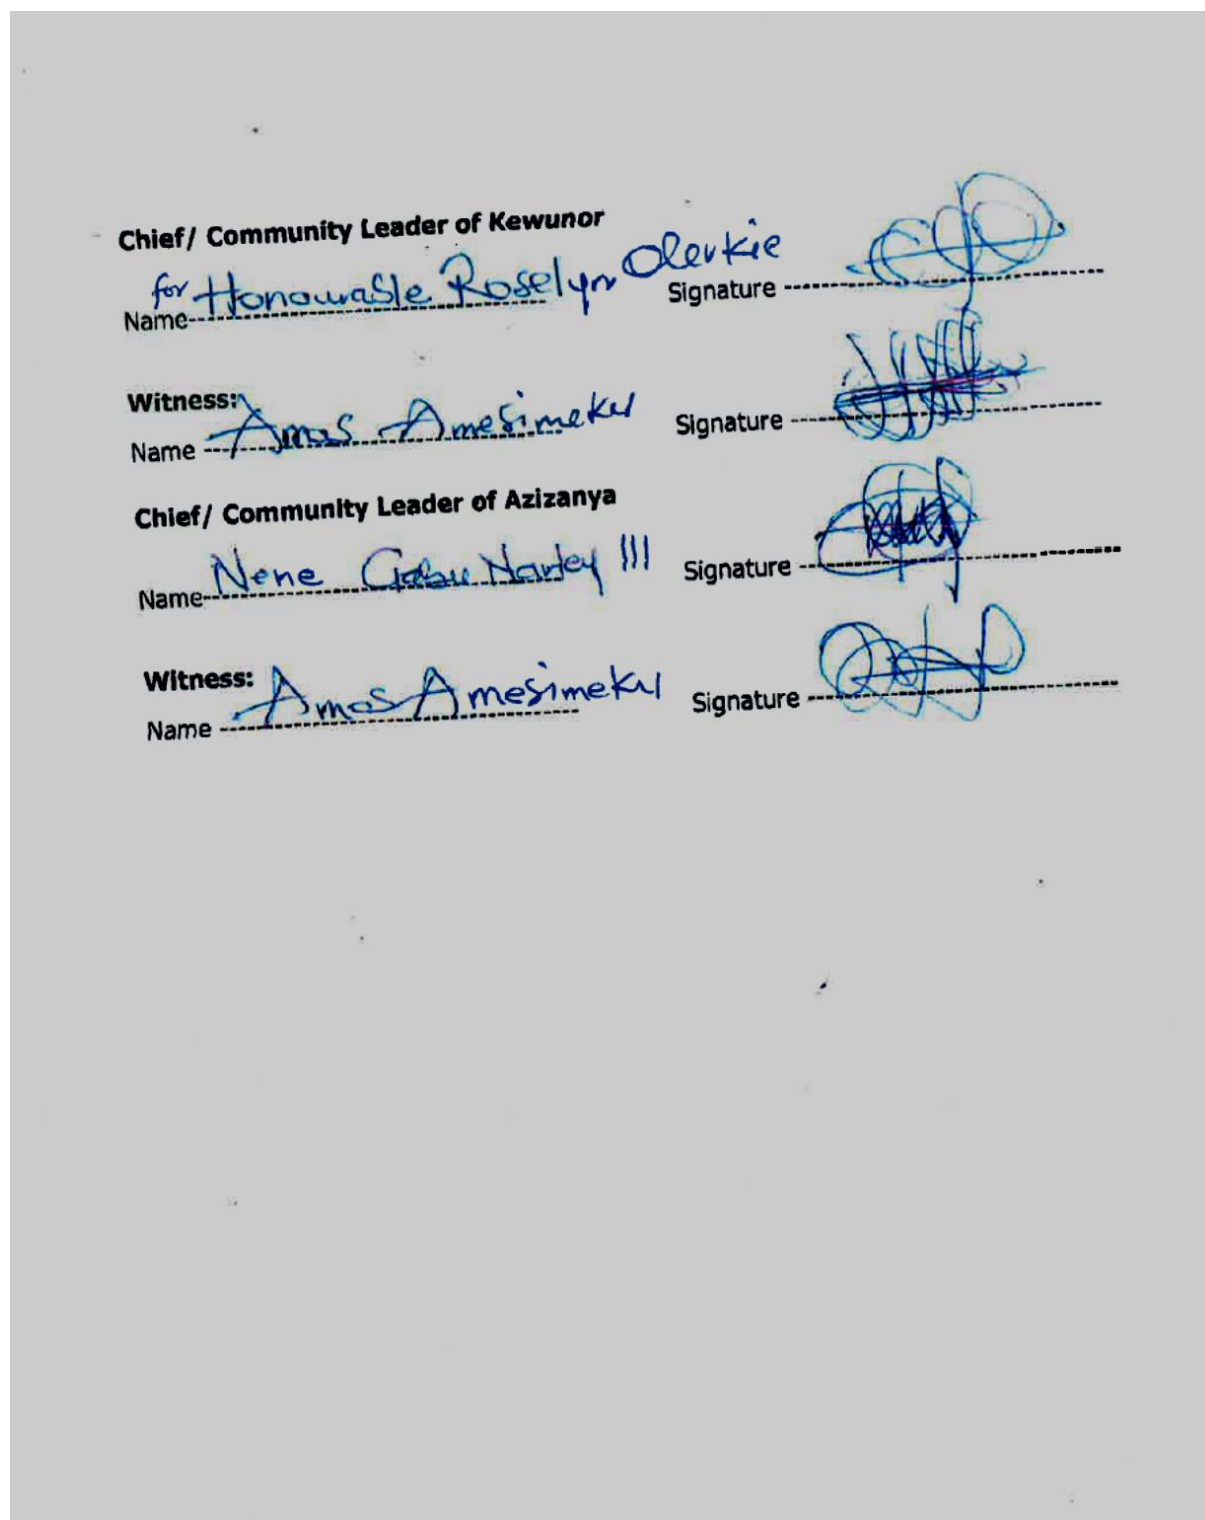 Chief/ Community Leader of Kewunor
for Honourable Roselyn Olerkie
Name Signature
Witness:
Name Amos Amesimeku Signature
Chief/ Community Leader of Azizanya
Name Nene Gabu Nartey III Signature
Witness:
Name Amos Amesimeku Signature